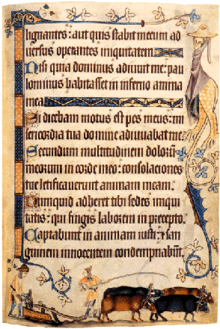 lignantes: aut quis stabit mecum ad
uersus operantes iniquitatem
Nisi quia dominus adiuuit me: pau
lominus habitasset in inferno anima
mea
Si dicebam motus est pes meus: mi
sericordia tua domine adiuuabat me
Secundum multitudinem dolorum
meorum in corde meo: consolationes
tue letificauerunt animam meam
Numquid adheret tibi sedes iniqui
tatis: qui fingis laborem in precepto
Captabunt in animam iusti: et san
guinem innocentem condempnabunt